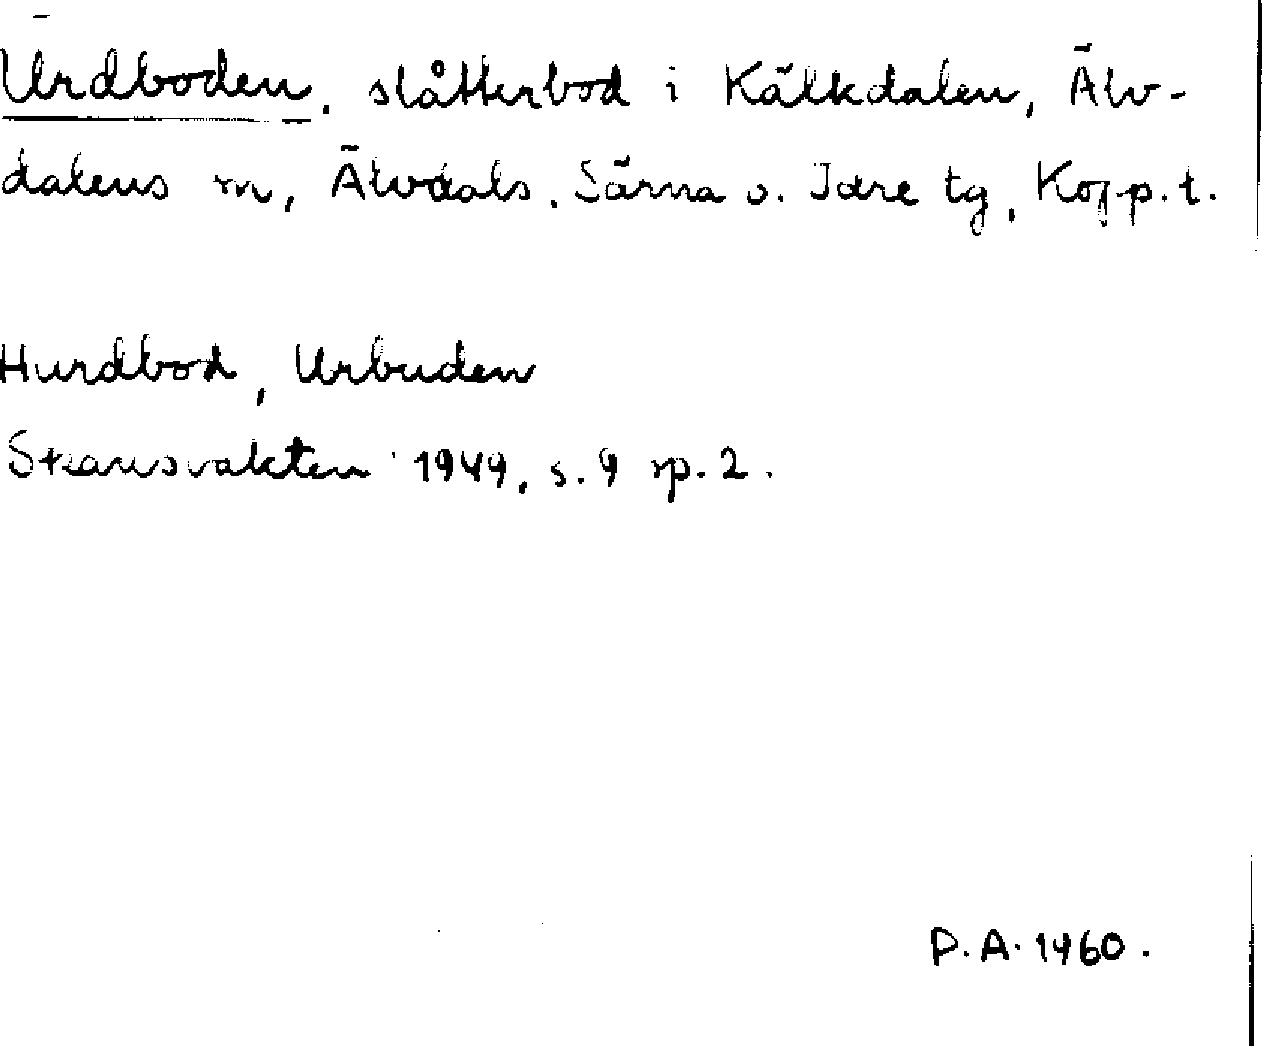 Urdboden, slåtterbod i Kälkdalen, Älv-
dalens m, Älvdals, Särna o. Idre tg, Kopp. l.
Hurdbod, Urbuden
Skansvakten 1949, s. 9 sp. 2.
P.A. 1960.